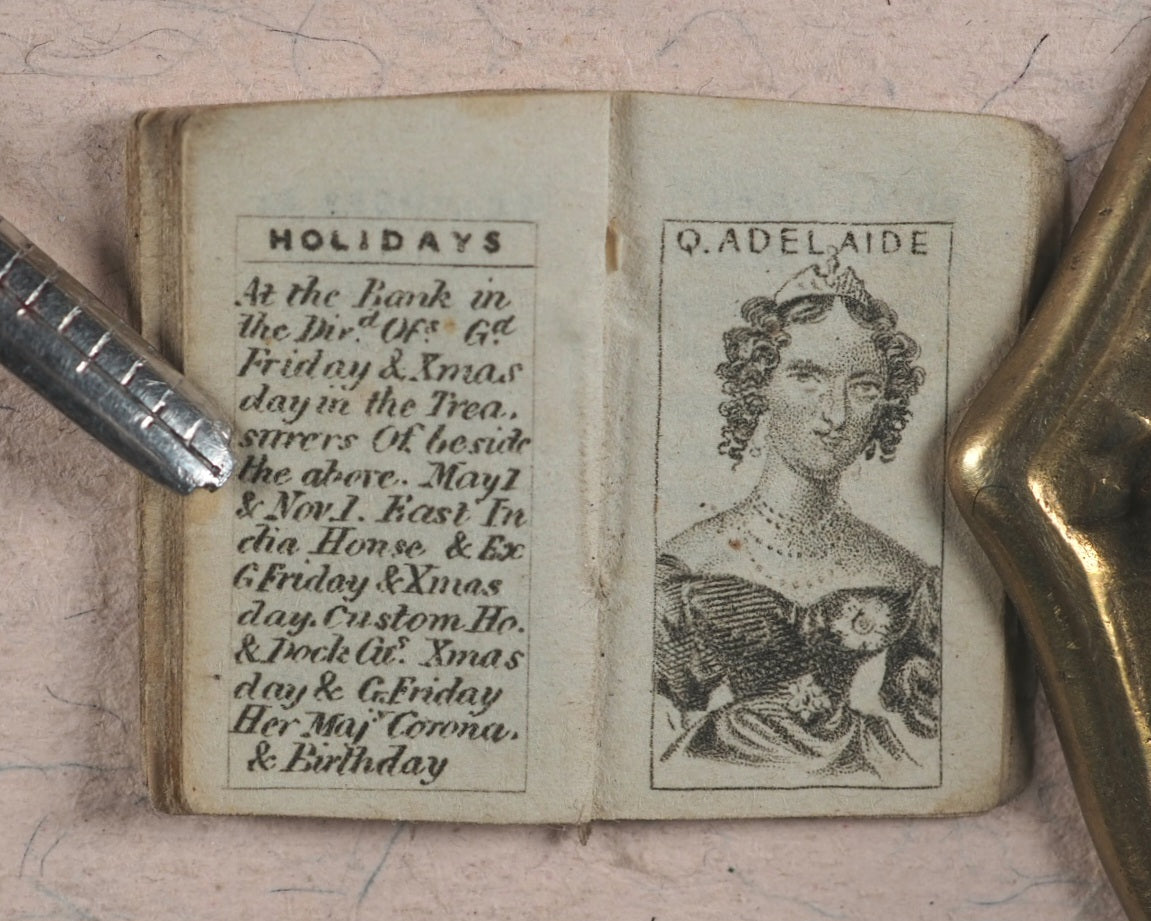 HOLIDAYS
At the Bank in
the Dir.d Ofs. Gd
Friday & Xmas
day in the Trea.
surers Of beside
the above. May 1
& Nov. 1. East In
dia House & Ex
G Friday & Xmas
day. Custom Ho.
& Dock Cus. Xmas
day & G. Friday
Her Maj.s Corona.
& Birthday
Q. ADELAIDE